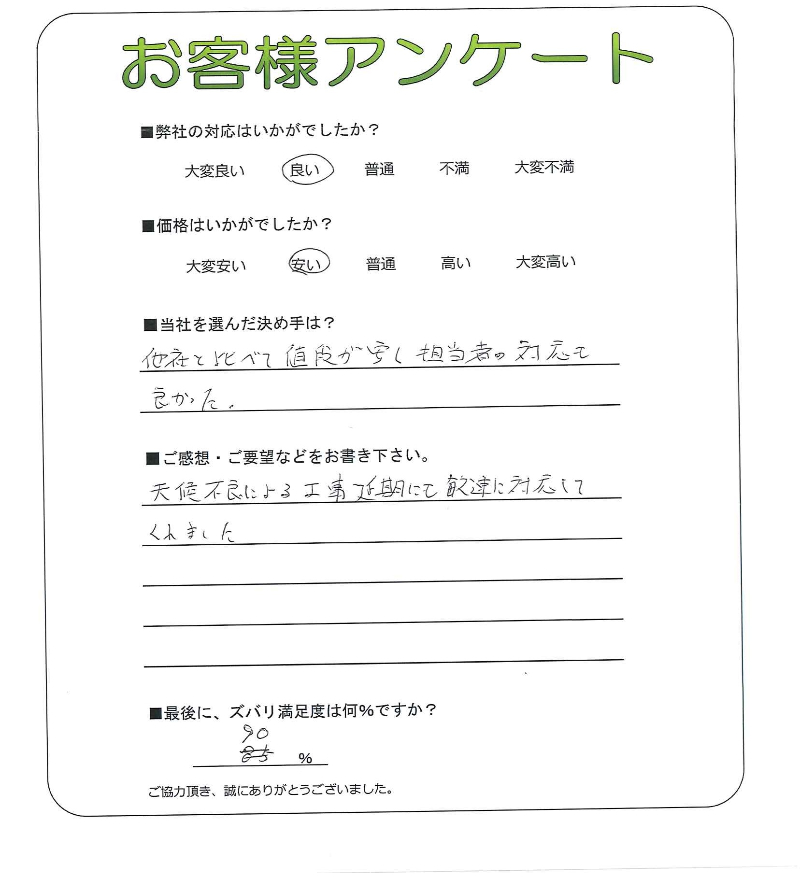 お客様アンケート
■弊社の対応はいかがでしたか？
大変良い 良い 普通 不満 大変不満
■価格はいかがでしたか？
大変安い 安い 普通 高い 大変高い
■当社を選んだ決め手は？
他社と比べて値段が安く担当者の対応も
良かった。
■ご感想・ご要望などをお書き下さい。
天候不良による工事延期にも敏速に対応して
くれました
■最後に、ズバリ満足度は何%ですか？
90
85 %
ご協力頂き、誠にありがとうございました。